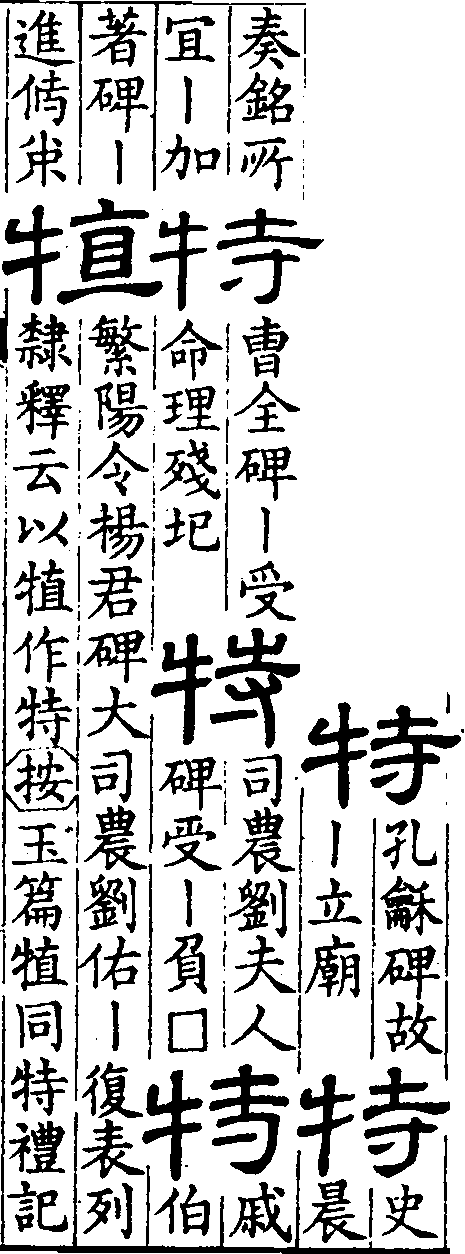 特
孔龢碑故
丨立廟
特
史
晨
奏銘所
宜丨加
特
曹全碑丨受
命理殘圮
特
司農劉夫人
碑受丨負□
特
戚
伯
著碑丨
進
犆
繁陽令楊君碑大司農劉佑丨復表列
隸釋云以犆作特按玉篇犆同特禮記